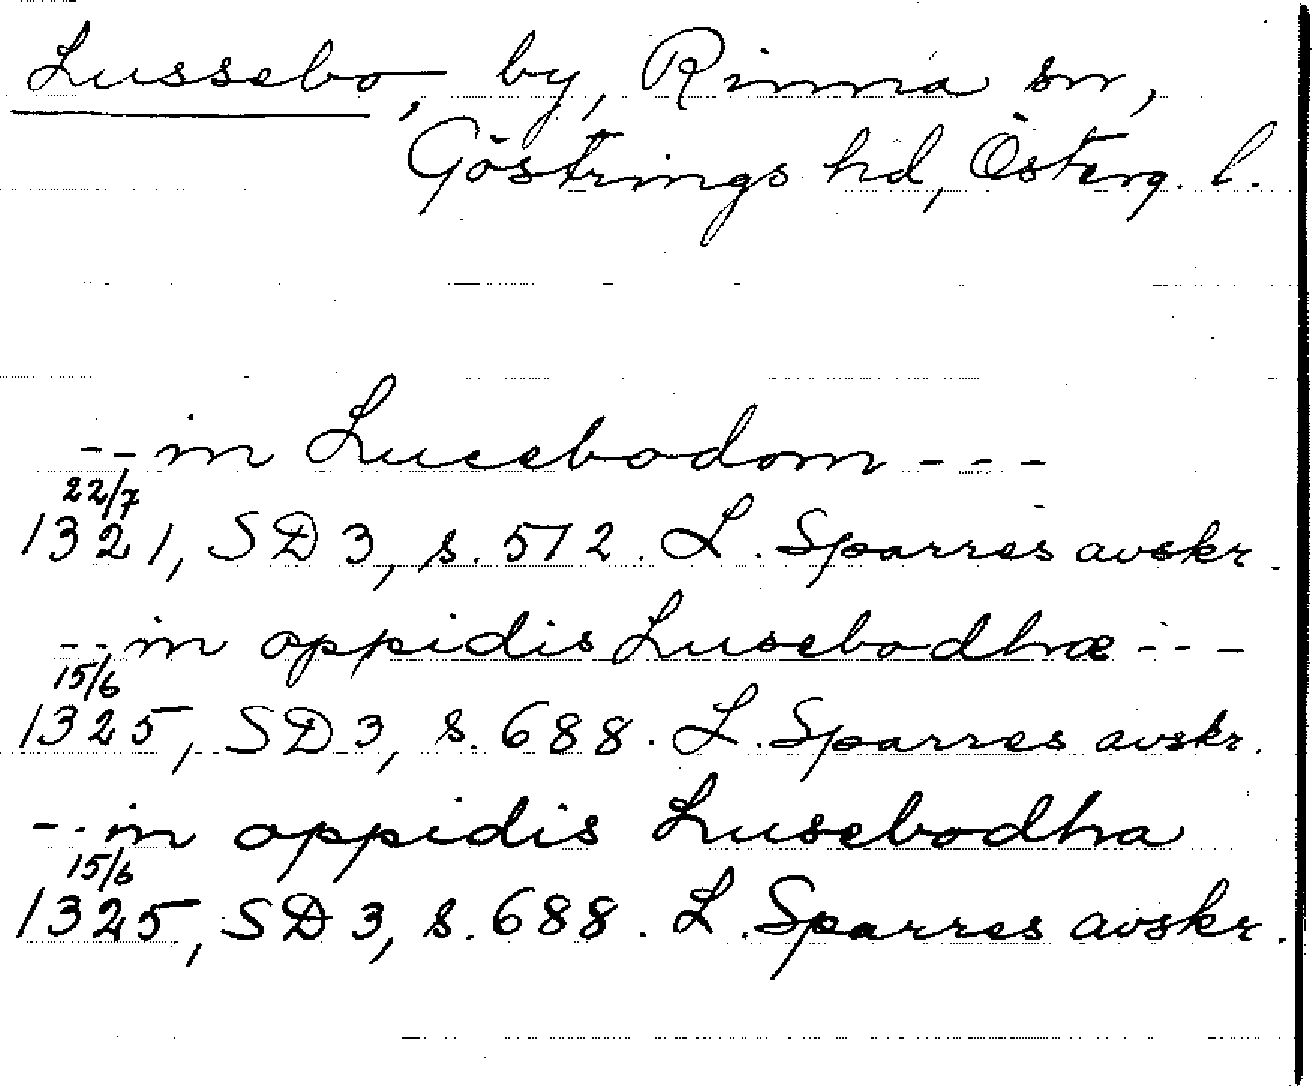 Lussebo, by, Rinna sn,
Göstrings hd, Österg. l.
-- in Lucebodom ---
22/7
1321, SD 3, s. 512. L. Sparres avskr.
-- in oppidis Lusebodhæ ---
15/6
1325, SD 3, s. 688. L. Sparres avskr.
-- in oppidis Lusebodha
15/6
1325, SD 3, s. 688. L. Sparres avskr.